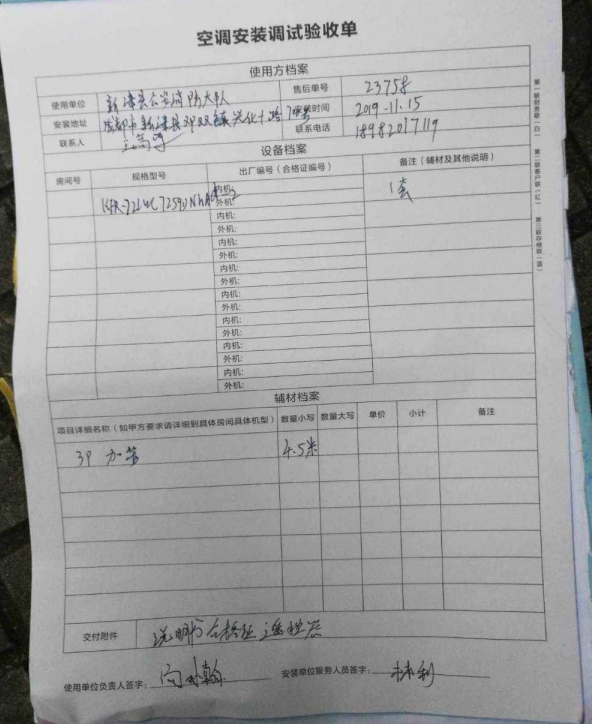 空调安装调试验收单
使用方档案
使用单位 新津县公安消防大队 售后单号 23758
安装地址 成都市新津县邓双镇兴化十路 安装时间 2019.11.15
联系人 联系电话 18982017119
设备档案
房间号 规格型号 出厂编号（合格证编号） 备注（辅材及其他说明）
内机: 1套
外机:
内机:
外机:
内机:
外机:
内机:
外机:
内机:
外机:
内机:
外机:
内机:
外机:
内机:
外机:
辅材档案
项目详细名称（如甲方要求请详细到具体房间具体机型） 数量小写 数量大写 单价 小计 备注
3P 加管 4.5米
交付附件 说明书 合格证 遥控器
使用单位负责人签字: 安装单位服务人员签字: 林利
第一联财务联（白） 第二联客户联（红） 第三联存根联（蓝）